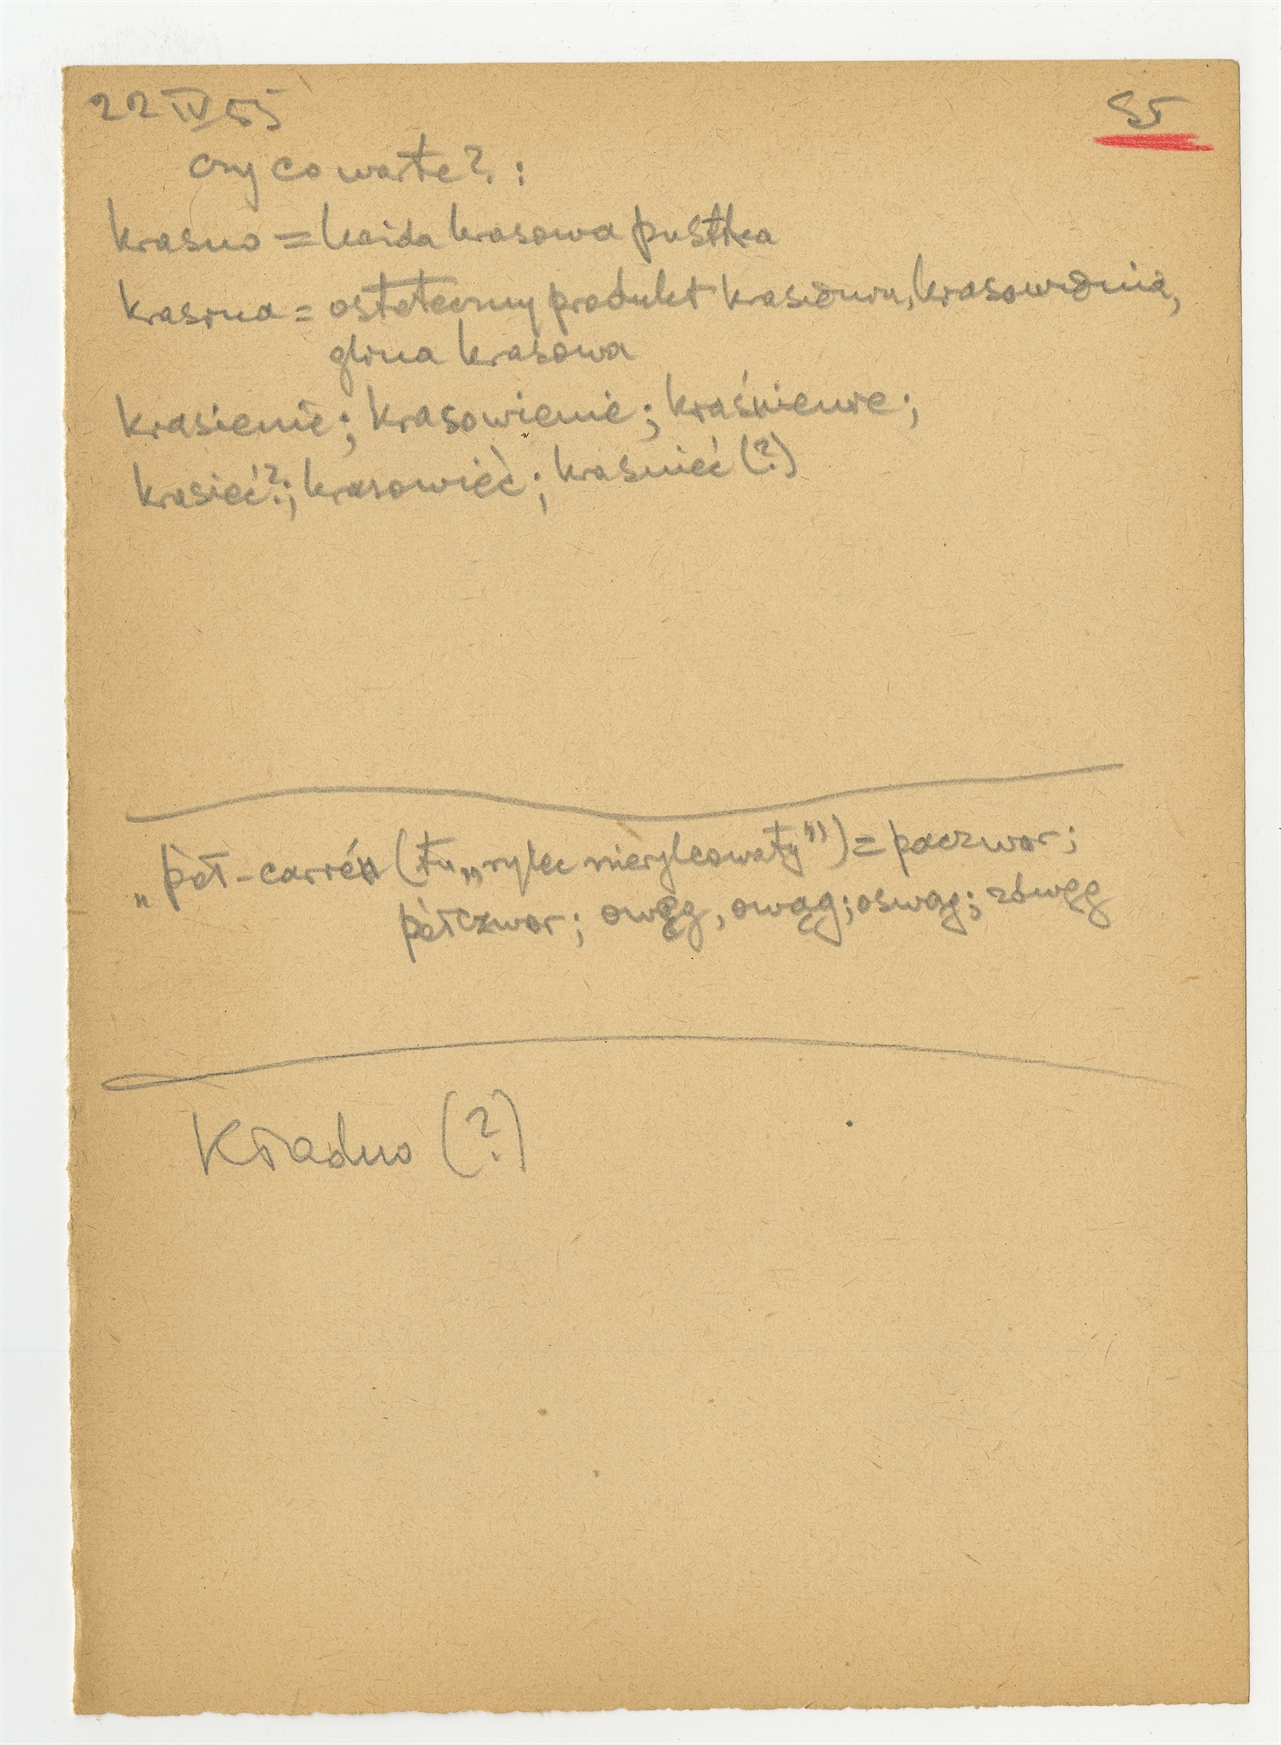 22 IV 55
czy co warte?:
krasno = każda krasowa pustka
krasina = ostateczny produkt krasienia, krasowienia,
glina krasowa
krasienie; krasowienie; kraśnienie;
krasieć?; krasowieć; kraśnieć (?)
„pół-carré" (tu „rylec nierylcowaty") = paczwor;
półczwor; owęg, owąg; oswąg; zbwęg
Kładno (?)